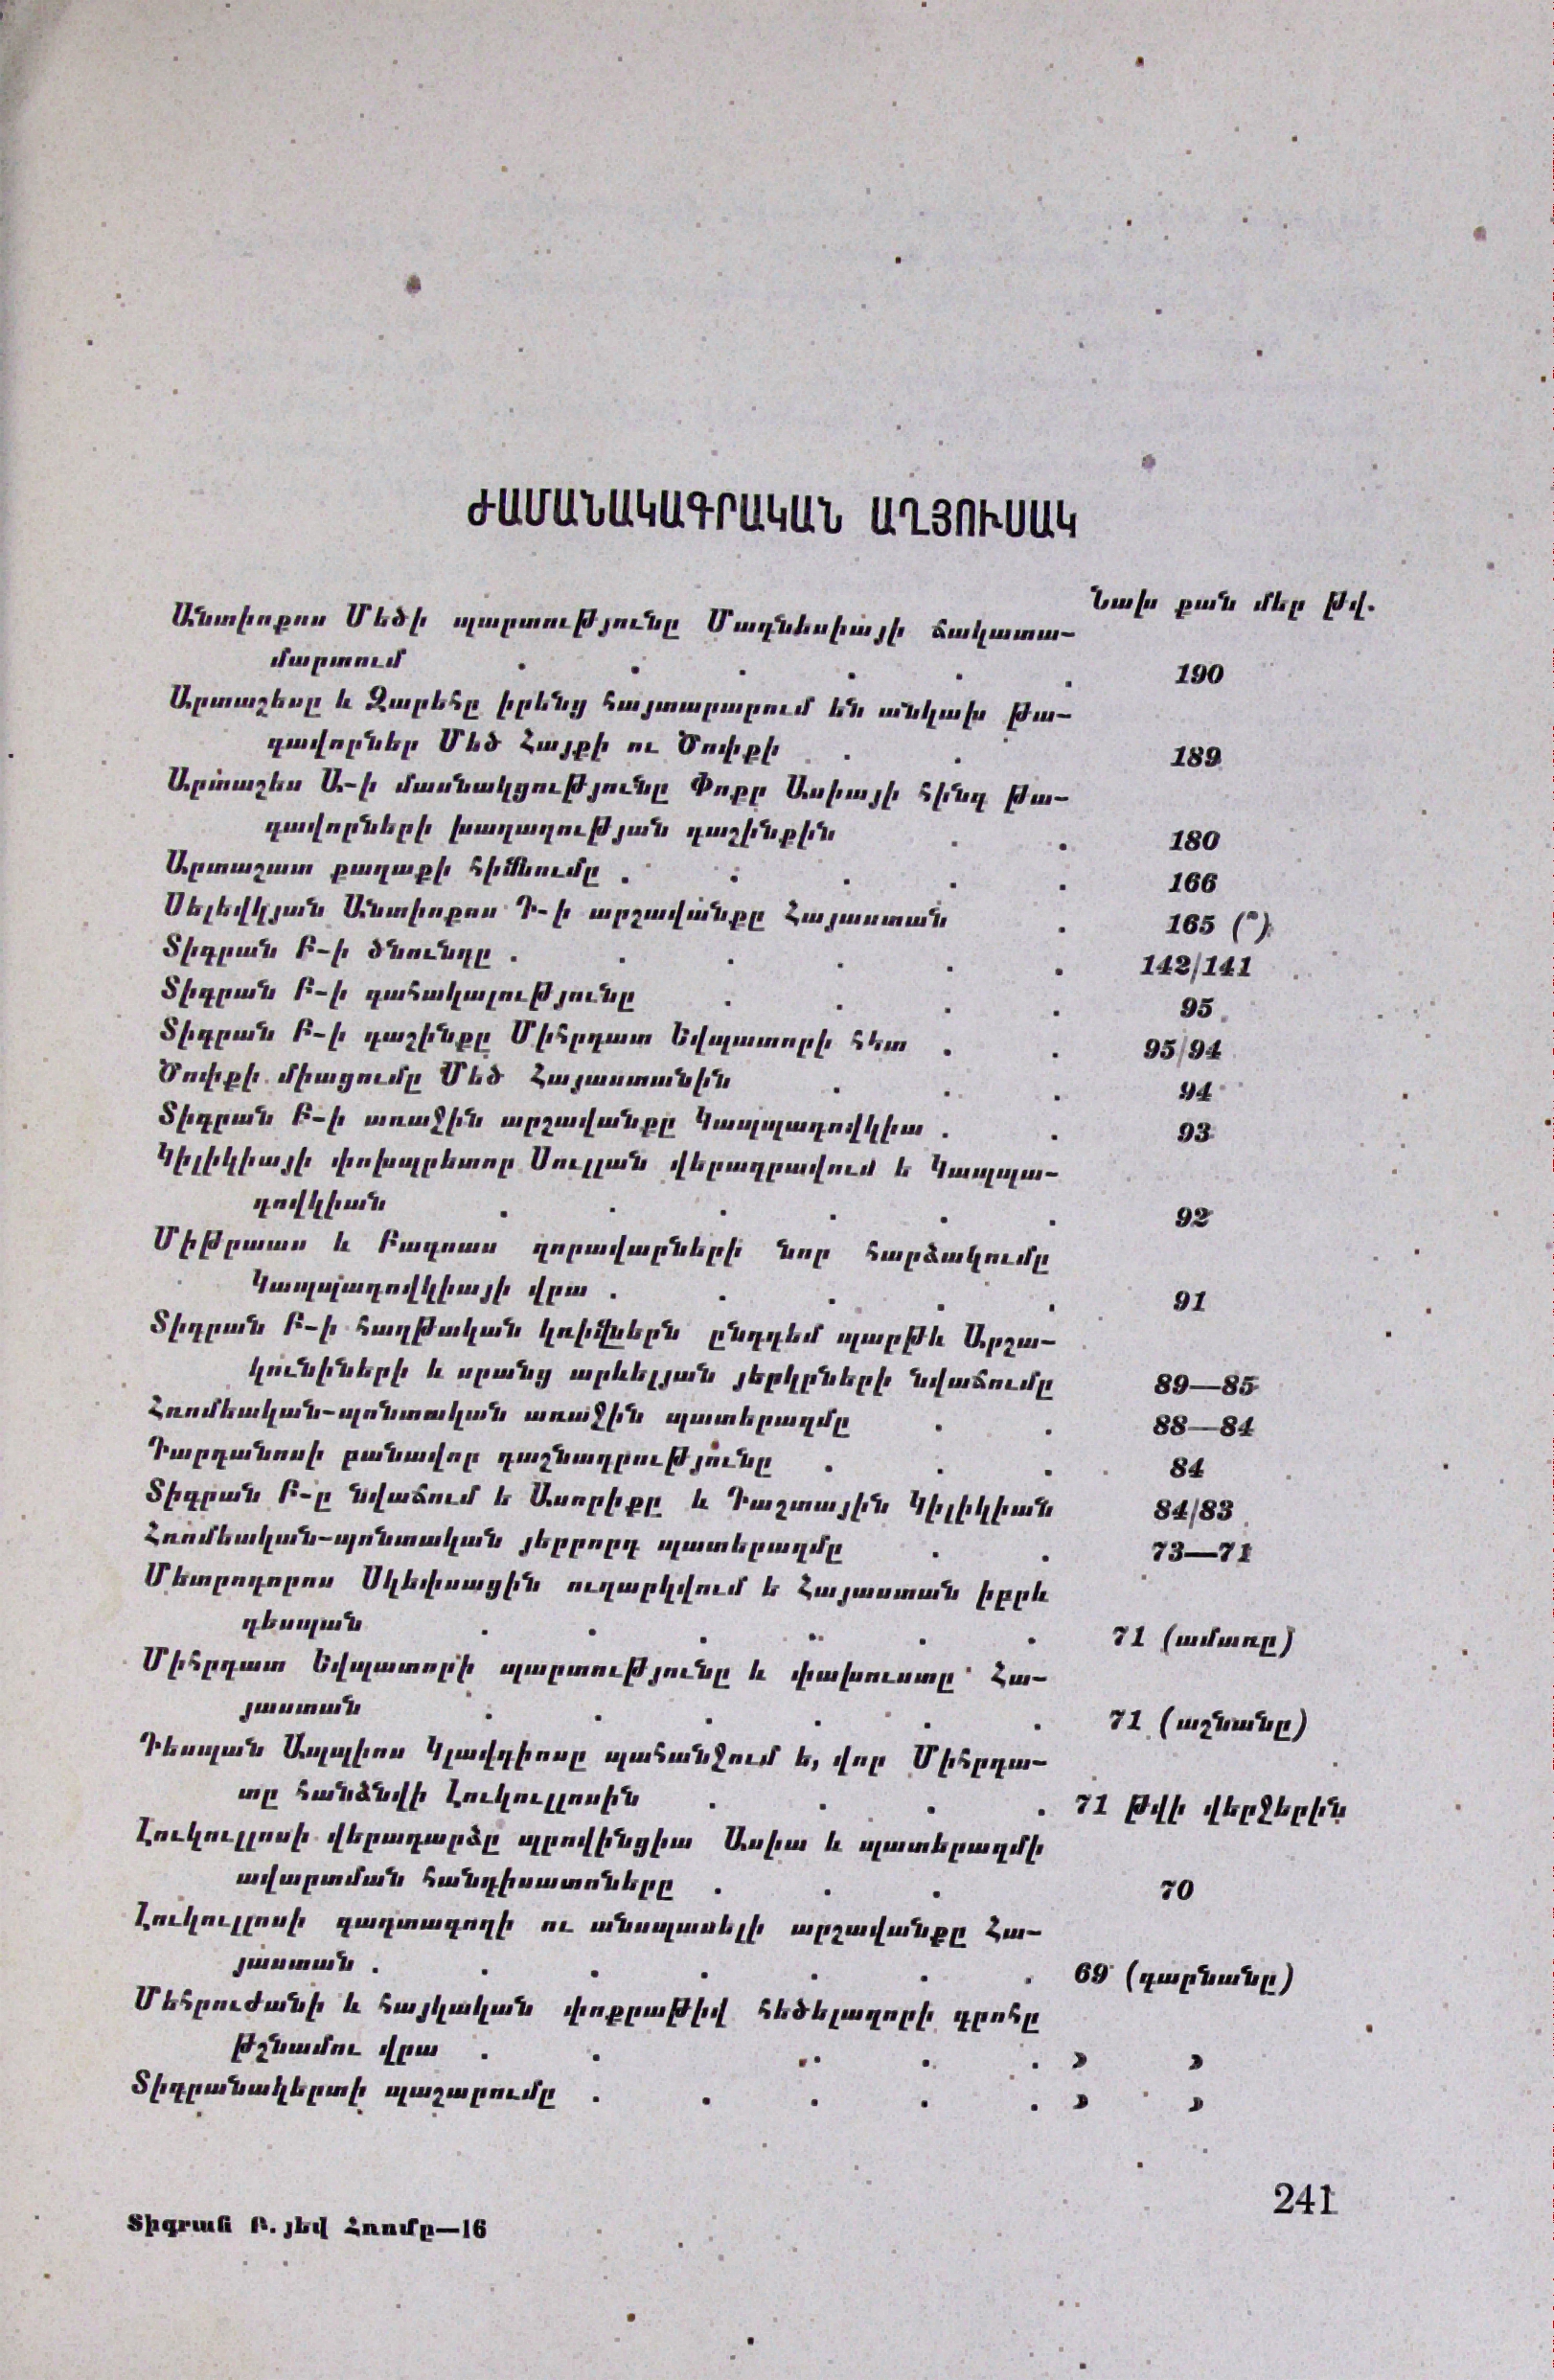 ԺԱՄԱՆԱԿԱԳՐԱԿԱՆ ԱՂՅՈՒՍԱԿ
Նախ քան մեր թվ.
Անտիոքոս Մեծի պարտությունը Մագնեսիայի ճակատա-
մարտում . . . . . . 190
Արտաշեսը և Զարեհը իրենց հայտարարում են անկախ թա-
գավորներ Մեծ Հայքի ու Ծոփքի . . 189
Արտաշես Ա-ի մասնակցությունը Փոքր Ասիայի հինգ թա-
գավորների խաղաղության դաշինքին . . 180
Արտաշատ քաղաքի հիմնումը . . . . . 166
Սելևկյան Անտիոքոս Դ-ի արշավանքը Հայաստան . 165 (՞)
Տիգրան Բ-ի ծնունդը . . . . . . 142/141
Տիգրան Բ-ի գահակալությունը . . . . 95
Տիգրան Բ-ի դաշինքը Միհրդատ Եվպատորի հետ . . 95/94
Ծոփքի միացումը Մեծ Հայաստանին . . . 94
Տիգրան Բ-ի առաջին արշավանքը Կապպադովկիա . . 93
Կիլիկիայի փոխպրետոր Սուլլան վերագրավում ե Կապպա-
դովկիան . . . . . . 92
Միթրաաս և Բագոաս զորավարների նոր հարձակումը
Կապպադովկիայի վրա . . . . . 91
Տիգրան Բ-ի հաղթական կռիվներն ընդդեմ պարթև Արշա-
կունիների և սրանց արևելյան յերկրների նվաճումը 89—85
Հռոմեական-պոնտական առաջին պատերազմը . . 88—84
Դարդանոսի բանավոր դաշնադրությունը . . . 84
Տիգրան Բ-ը նվաճում ե Ասորիքը և Դաշտային Կիլիկիան 84/83
Հռոմեական-պոնտական յերրորդ պատերազմը . . 73—71
Մետրոդորոս Սկեփսացին ուղարկվում ե Հայաստան իբրև
դեսպան . . . . . . 71 (ամառը)
Միհրդատ Եվպատորի պարտությունը և փախուստը Հա-
յաստան . . . . . . 71 (աշնանը)
Դեսպան Ապպիոս Կլավդիոսը պահանջում ե, վոր Միհրդա-
տը հանձնվի Լուկուլլոսին . . . . 71 թվի վերջերին
Լուկուլլոսի վերադարձը պրովինցիա Ասիա և պատերազմի
ավարտման հանդիսատոները . . . 70
Լուկուլլոսի գաղտագողի ու անսպասելի արշավանքը Հա-
յաստան . . . . . . . 69 (գարնանը)
Մեհրուժանի և հայկական փոքրաթիվ հեծելազորի գրոհը
թշնամու վրա . . . . . » »
Տիգրանակերտի պաշարումը . . . . . » »
241
Տիգրան Բ. յեվ Հռոմը—16